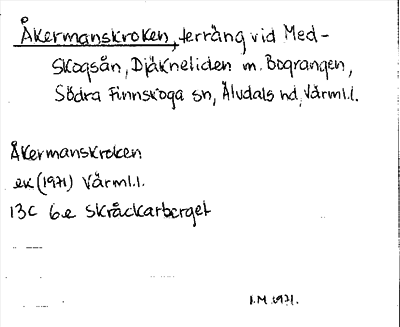 Åkermanskroken, terräng vid Med-
Skogsån, Djäkneliden m. Bograngen,
Södra Finnskoga sn, Älvdals hd, Värml.l.
Åkermanskroken
ek (1971) Värml.l.
13C 6e Skråckarberget
I.M. 1971.